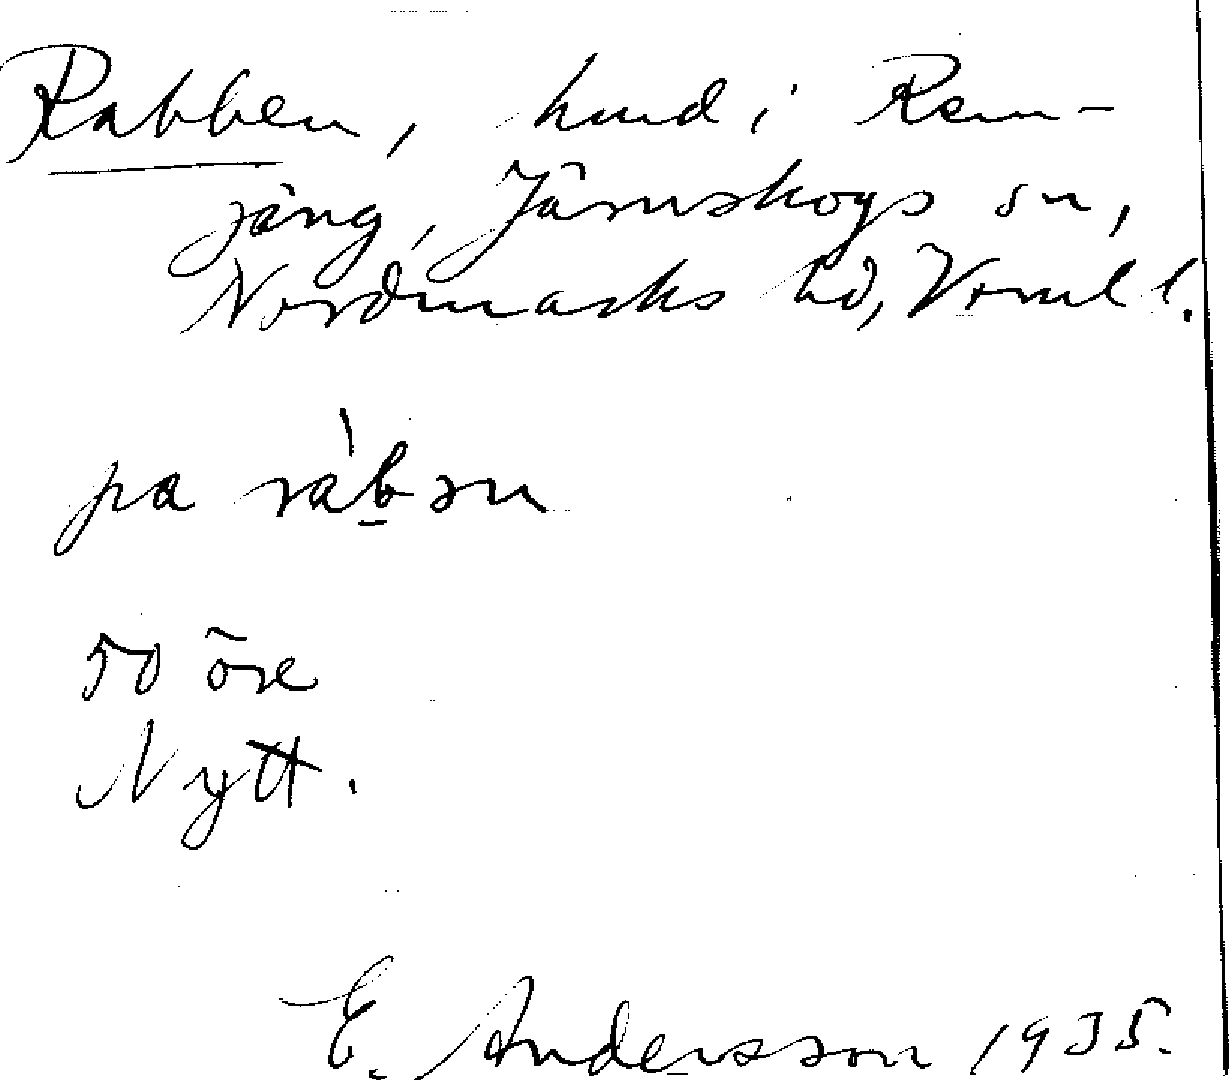 Rabben, hmd i Ren-
jäng, Järnskogs sn,
Nordmarks hd, Vrml l.
pa ràbən
50 öre
Nytt.
E. Andersson 1935.